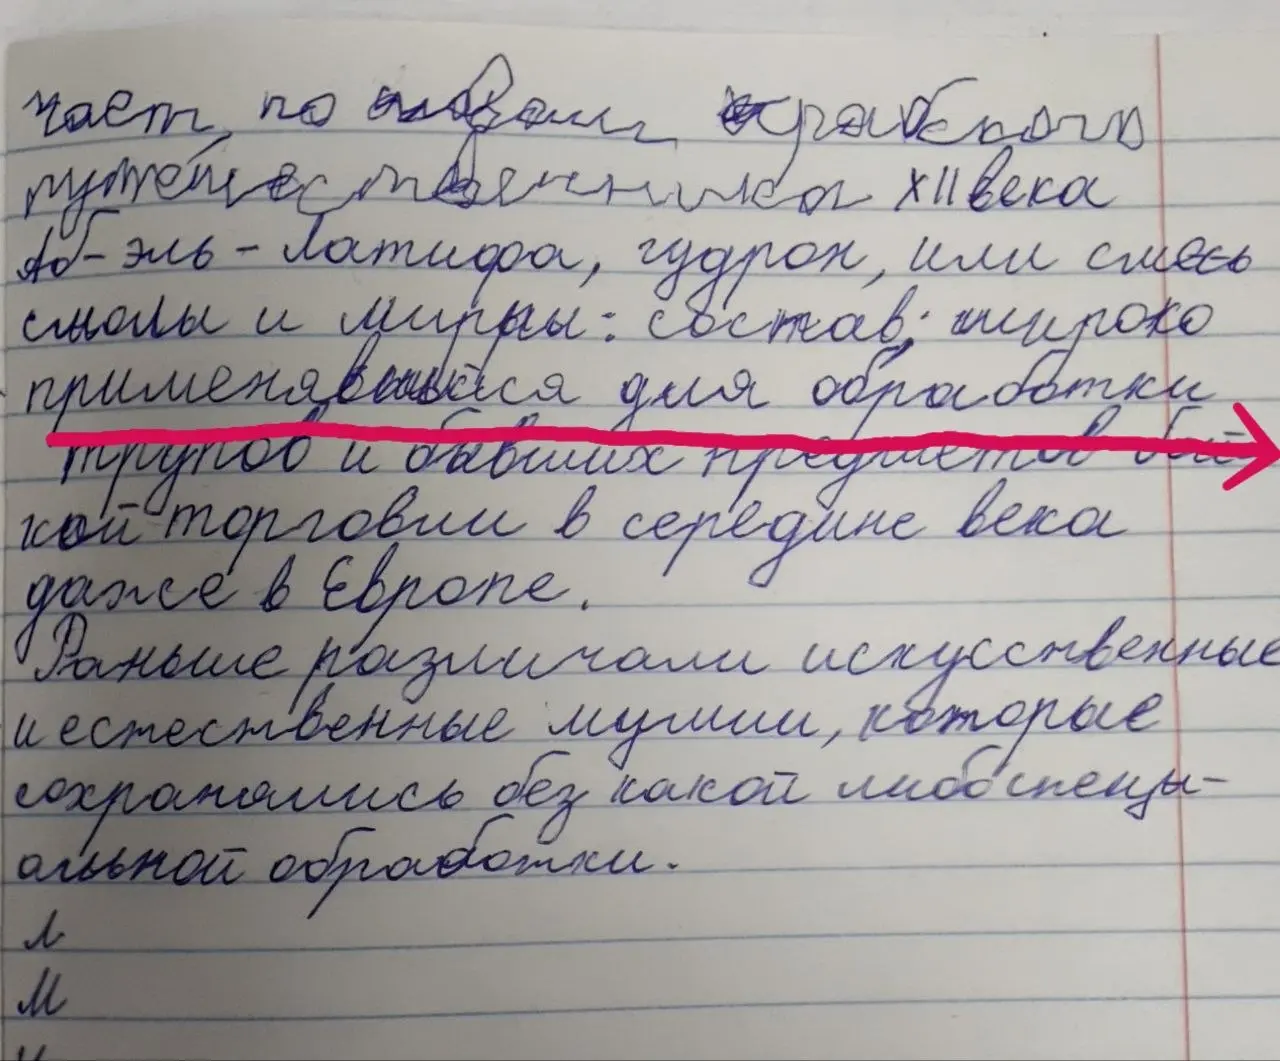 част, по словам арабского
путешественника XII века
Аб-эль-Латифа, гудрон, или смесь
смолы и мирры: состав; широко
применявшийся для обработки
трупов и бывших предметов бой
кой торговли в середине века
даже в Европе.
Раньше различали искусственные
и естественные мумии, которые
сохранялись без какой либо специ-
альной обработки.
л
М